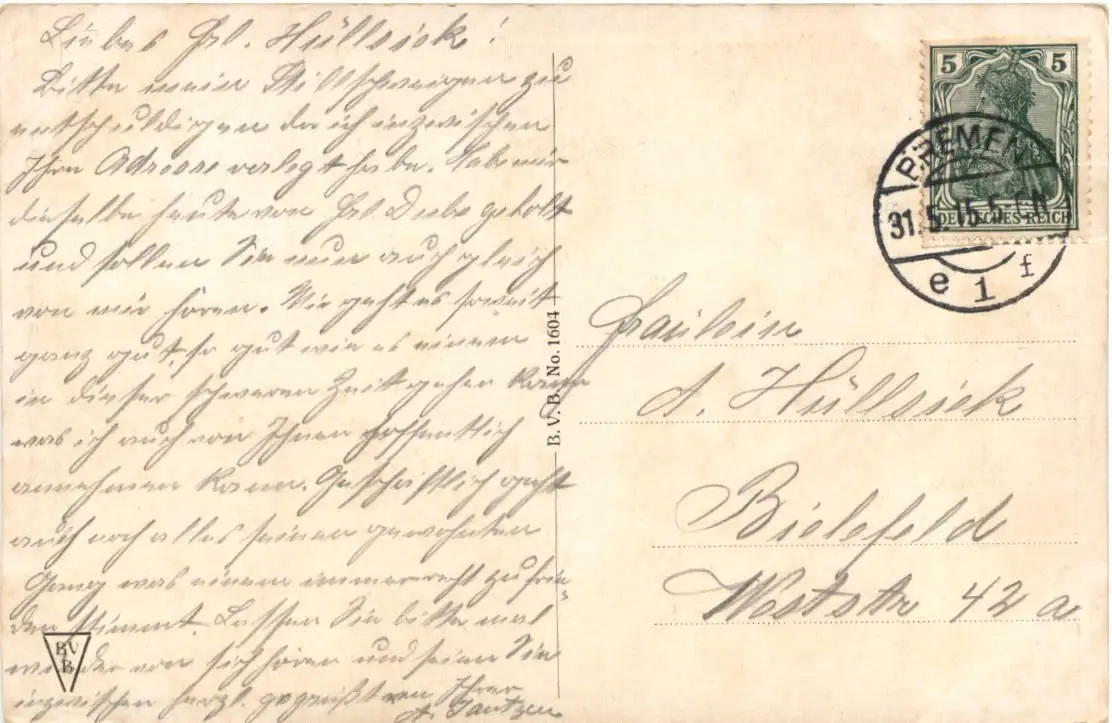 Liebes Frl. Hüllsiek!
Bitte mein Stillschweigen zu
entschuldigen da ich inzwischen
Ihre Adresse verlegt habe. Habe mir
dieselbe heute von Frl geholt
und sollen Sie nun auch gleich
von mir hören. Mir geht es soweit
ganz gut, so gut wie es einem
in dieser schweren Zeit gehen kann
was ich auch von Ihnen hoffentlich
annehmen kann. Geschäftlich geht
auch noch alles seinen gewohnten
Gang was einem immer recht zufrie-
den stimmt. Lassen Sie bitte mal
wieder von sich hören und seien Sie
inzwischen herzl. gegrüßt von Ihrer
A. Jantzen
B. V. B. No. 1604
BV
B
5 5
DEUTSCHES REICH
BREMEN
31.5.15.5-6N
e 1 f
Fräulein
A. Hüllsiek
Bielefeld
Weststr 42 a